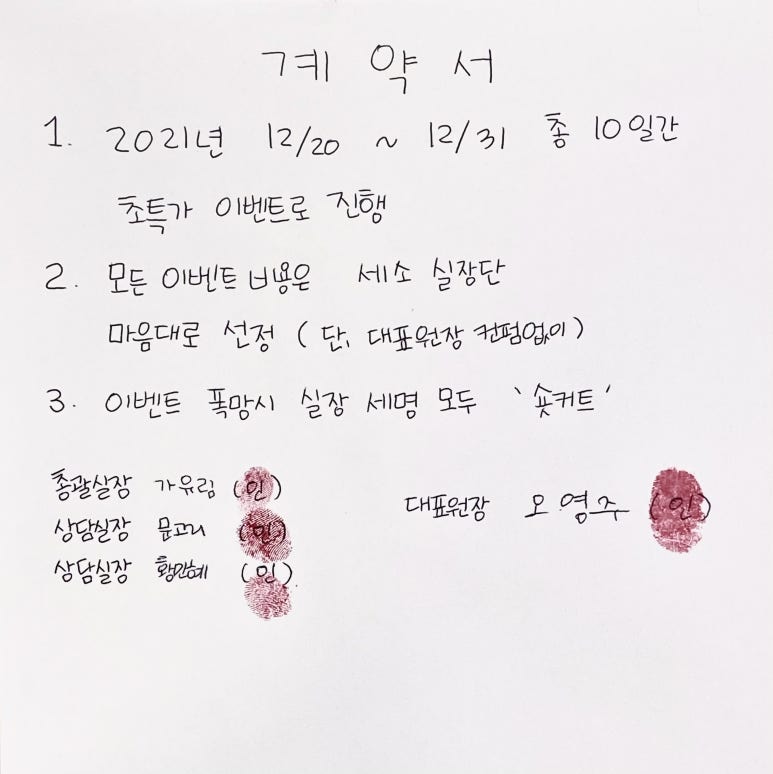 계약서
1. 2021년 12/20 ~ 12/31 총 10일간
초특가 이벤트로 진행
2. 모든 이벤트 비용은 세소 실장단
마음대로 선정 (단, 대표원장 컨펌없이)
3. 이벤트 폭망시 실장 세명 모두 '숏커트'
총괄실장 가유림 (인)
상담실장 문고리 (인)
상담실장 황만혜 (인)
대표원장 오영주 (인)